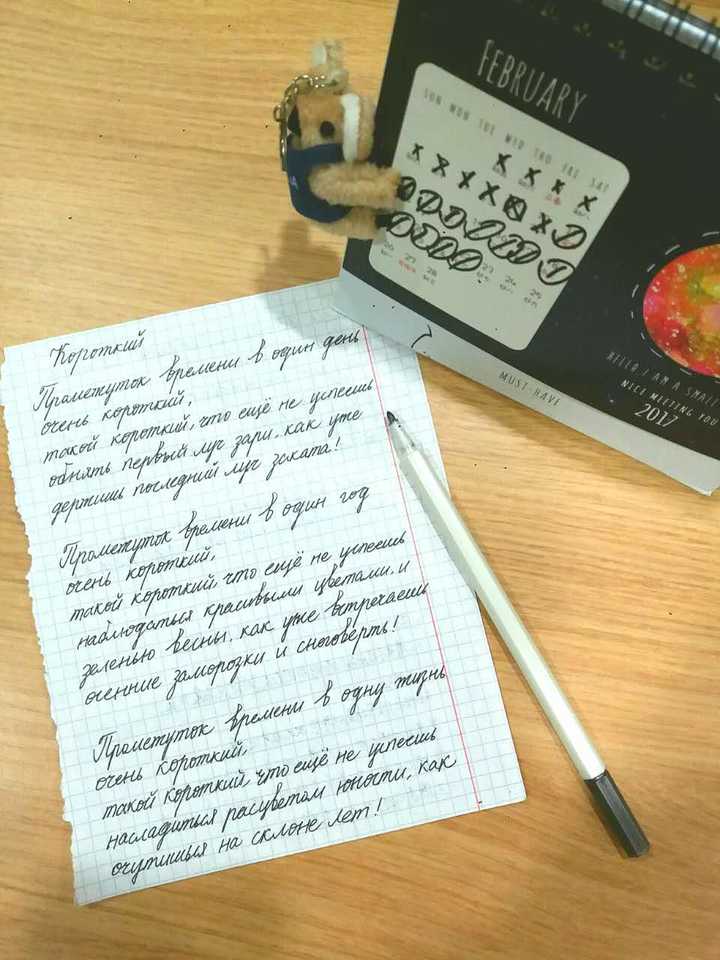 FEBRUARY
SUN MON TUE WED THU FRI SAT
26 27 28
27 26 25
MUST-HAVE
HELLO I AM A SMALL
NICE MEETING YOU
2017
Короткий
Промежуток времени в один день
очень короткий,
такой короткий, что ещё не успеешь
обнять первый луч зари, как уже
держишь последний луч заката!
Промежуток времени в один год
очень короткий,
такой короткий, что ещё не успеешь
наблюдаться красивыми цветами, и
зеленью весны, как уже встречаешь
осенние заморозки и сноговерть!
Промежуток времени в одну жизнь
очень короткий,
такой короткий, что ещё не успеешь
насладиться расцветом юности, как
очутишься на склоне лет!